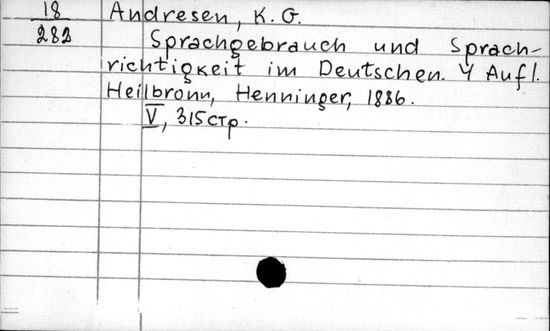 18 Andresen, K. G.
282 Sprachgebrauch und Sprach-
richtigkeit im Deutschen. 4 Aufl.
Heilbronn, Henninger, 1886.
V, 315 стр.